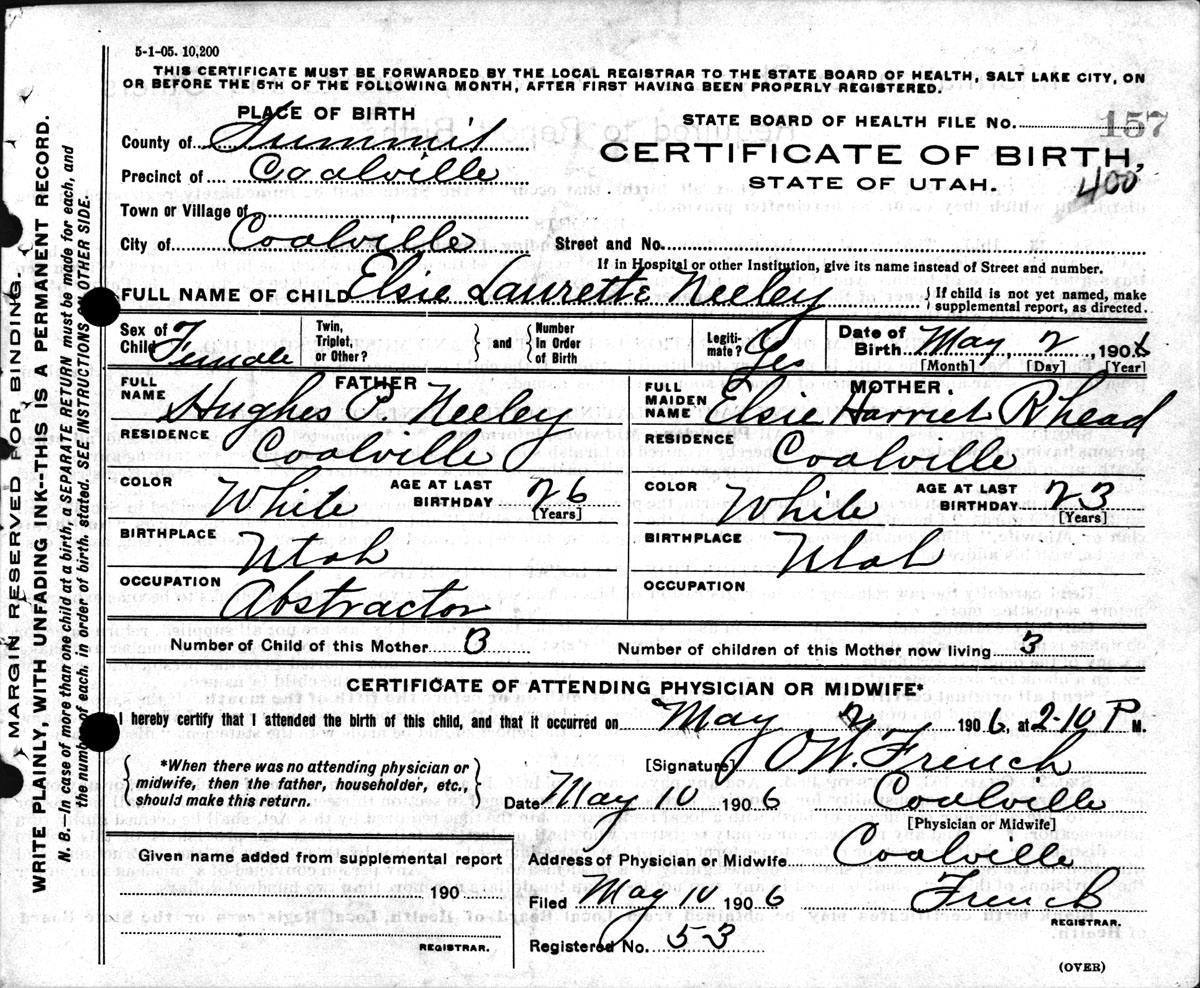 5-1-05. 10,200
THIS CERTIFICATE MUST BE FORWARDED BY THE LOCAL REGISTRAR TO THE STATE BOARD OF HEALTH, SALT LAKE CITY, ON
OR BEFORE THE 5TH OF THE FOLLOWING MONTH, AFTER FIRST HAVING BEEN PROPERLY REGISTERED.
PLACE OF BIRTH
STATE BOARD OF HEALTH FILE NO. 157
County of Summit
CERTIFICATE OF BIRTH,
Precinct of Coalville
STATE OF UTAH.
400
Town or Village of
City of Coalville Street and No.
If in Hospital or other Institution, give its name instead of Street and number.
FULL NAME OF CHILD Elsie Laurette Neeley { If child is not yet named, make supplemental report, as directed.
Sex of Child Female Twin, Triplet, or Other? } and { Number in Order of Birth Legitimate? Yes Date of Birth May 2 1906
[Month] [Day] [Year]
FATHER MOTHER
FULL NAME Hughes P Neeley FULL MAIDEN NAME Elsie Harriet Rhead
RESIDENCE Coalville RESIDENCE Coalville
COLOR White AGE AT LAST BIRTHDAY 26 [Years] COLOR White AGE AT LAST BIRTHDAY 23 [Years]
BIRTHPLACE Utah BIRTHPLACE Utah
OCCUPATION Abstractor OCCUPATION
Number of Child of this Mother 3 Number of children of this Mother now living 3
CERTIFICATE OF ATTENDING PHYSICIAN OR MIDWIFE*
I hereby certify that I attended the birth of this child, and that it occurred on May 2 1906, at 2-10 P M.
*When there was no attending physician or midwife, then the father, householder, etc., should make this return.
[Signature] OW. French
Date May 10 1906 Coalville
[Physician or Midwife]
Given name added from supplemental report
Address of Physician or Midwife Coalville
190
Filed May 10 1906 French
REGISTRAR.
REGISTRAR.
Registered No. 53
(OVER)
MARGIN RESERVED FOR BINDING.
WRITE PLAINLY, WITH UNFADING INK--THIS IS A PERMANENT RECORD.
N. B.--In case of more than one child at a birth, a SEPARATE RETURN must be made for each, and
the number of each, in order of birth, stated. SEE INSTRUCTIONS ON OTHER SIDE.